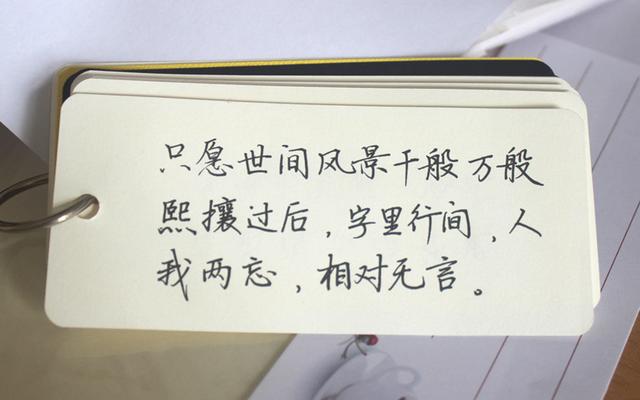 只愿世间风景千般万般
熙攘过后,字里行间,人
我两忘,相对无言。